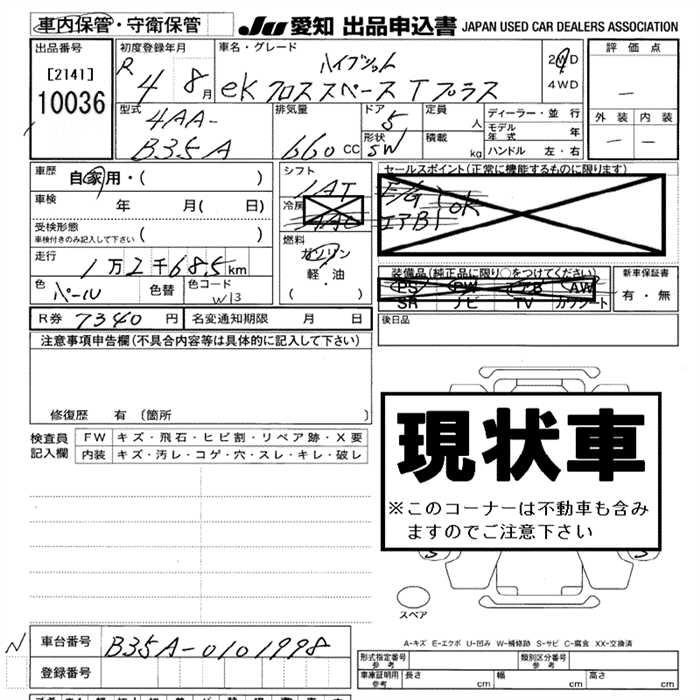 車内保管・守衛保管
JU 愛知 出品申込書 JAPAN USED CAR DEALERS ASSOCIATION
出品番号
[2141]
10036
初度登録年月
R 4 8月
車名・グレード
ハイブリット
eKクロススペース T プラス
2WD
4WD
評価点
―
外装 内装
― ―
型式
4AA-
B35A
排気量
660 CC
ドア 5
形状 SW
定員 人
積載 kg
ディーラー・並行
モデル年式 年
ハンドル 左・右
車歴 自家用・( )
車検 年 月( 日)
受検形態
車検付きのみ記入して下さい ( )
走行 1万2千685km
色 パール 色替 色コード W13
シフト
IAT
冷房
AAC
燃料
ガソリン
軽・油
( )
セールスポイント(正常に機能するものに限ります)
E/G
エアB
OK
装備品(純正品に限り○をつけてください)
PS PW エアB AW
SR ナビ TV カワシート
新車保証書
有・無
R券 7340円 名変通知期限 月 日
後日品
注意事項申告欄(不具合内容等は具体的に記入して下さい)
修復歴 有 [箇所 ]
検査員記入欄
FW キズ・飛石・ヒビ割・リペア跡・X要
内装 キズ・汚レ・コゲ・穴・スレ・キレ・破レ
現状車
※このコーナーは不動車も含み
ますのでご注意下さい
S S
スペア
A-キズ E-エクボ U-凹み W-補修跡 S-サビ C-腐食 XX-交換済
N 車台番号 B35A-0101998
登録番号
形式指定番号 参考 類別区分番号 参考
車庫証明用 参考 長さ cm 幅 cm 高さ cm